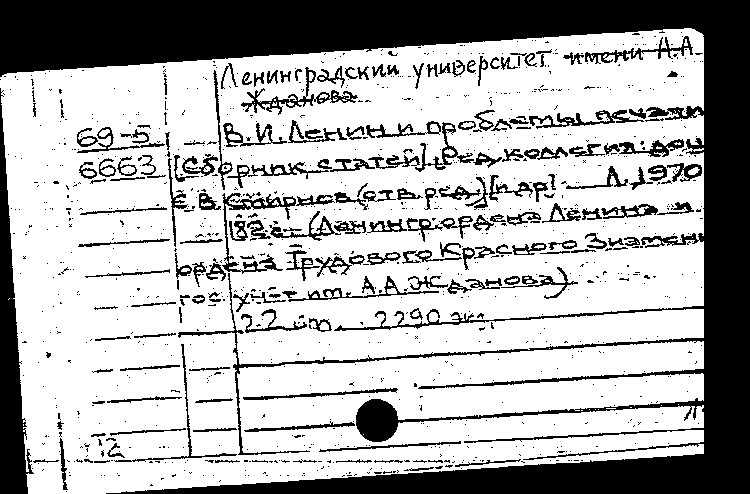 Ленинградский университет имени А.А
Жданова
69-5 В.И. Ленин и проблемы печати
6663 [Сборник статей]. Ред. коллегия: доц
Е.В. Смирнов (отв. ред.) [и др] Л., 1970
182 с. (Ленингр. ордена Ленина и
ордена Трудового Красного Знамени
гос ун-т им. А.А. Жданова)
22 см. 2290 эк.
12